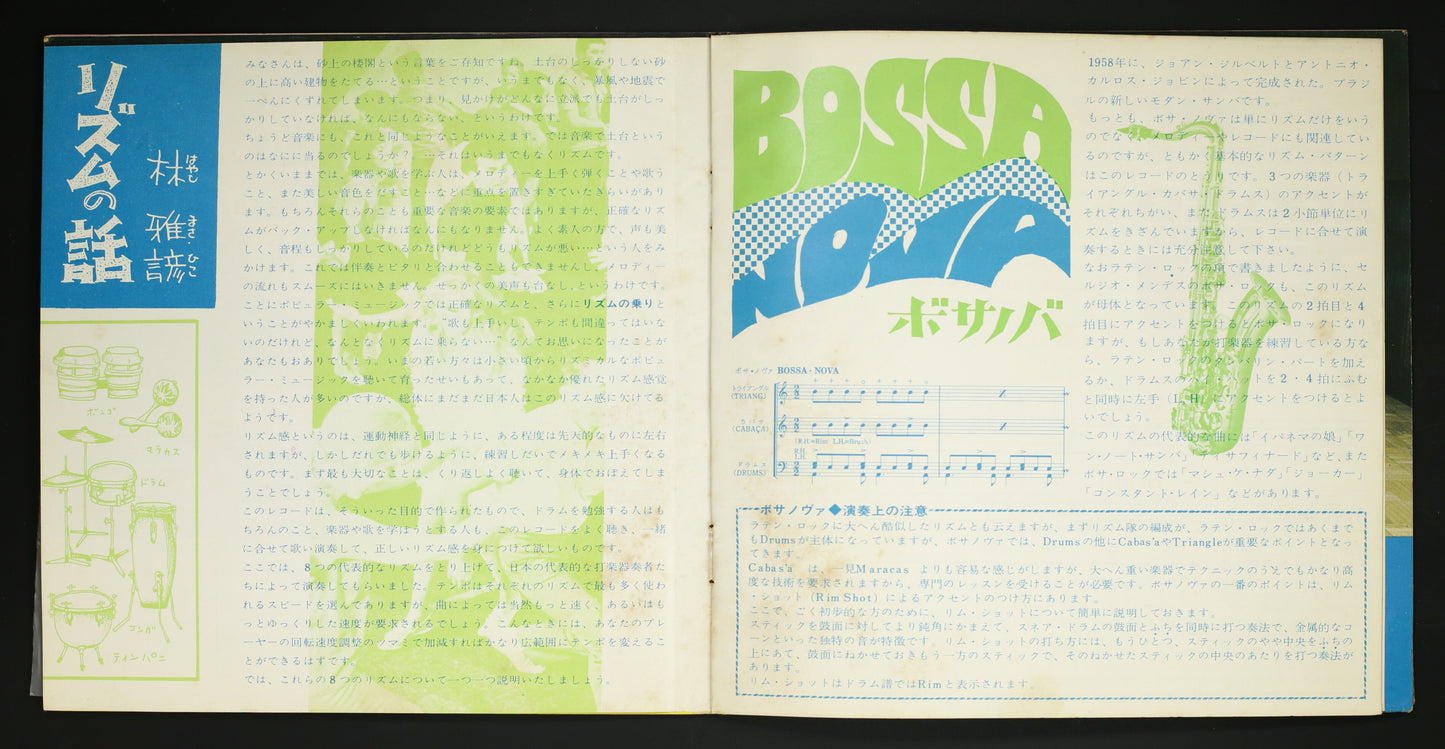 リズムの話
林 雅諺
はやし まさ・ひこ
ボンゴ
マラカス
ドラム
コンガ
ティンパニ
みなさんは、砂上の楼閣という言葉をご存知ですね。土台のしっかりしない砂
の上に高い建物をたてる…ということですが、いうまでもなく、暴風や地震で
一ぺんにくずれてしまいます。つまり、見かけがどんなに立派でも土台がしっ
かりしていなければ、なんにもならない、というわけです。
ちょうど音楽にも、これと同じようなことがいえます。では音楽で土台という
のはなにに当るのでしょうか？ …それはいうまでもなくリズムです。
とかくいままでは、楽器や歌を学ぶ人は、メロディーを上手く弾くことや歌う
こと、また美しい音色をだすこと…などに重点を置きすぎていたきらいがあり
ます。もちろんそれらのことも重要な音楽の要素ではありますが、正確なリズ
ムがバック・アップしなければなんにもなりません。よく素人の方で、声も美
しく、音程もしっかりしているのだけれどどうもリズムが悪い…という人をみ
かけます。これでは伴奏とピタリと合わせることもできませんし、メロディー
の流れもスムーズにはいきません。せっかくの美声も台なし、というわけです。
ことにポピュラー・ミュージックでは正確なリズムと、さらにリズムの乗りと
いうことがやかましくいわれます。“歌も上手いし、テンポも間違ってはいな
いのだけれど、なんとなくリズムに乗らない…”なんてお思いになったことが
あなたもおありでしょう。いまの若い方々は小さい頃からリズミカルなポピュ
ラー・ミュージックを聴いて育ったせいもあって、なかなか優れたリズム感覚
を持った人が多いのですが、総体にまだまだ日本人はこのリズム感に欠けてる
ようです。
リズム感というのは、運動神経と同じように、ある程度は先天的なものに左右
されますが、しかしだれでも歩けるように、練習しだいでメキメキ上手くなる
ものです。まず最も大切なことは、くり返しよく聴いて、身体でおぼえてしま
うことでしょう。
このレコードは、そういった目的で作られたもので、ドラムを勉強する人はも
ちろんのこと、楽器や歌を学ぼうとする人も、このレコードをよく聴き、一緒
に合せて歌い演奏して、正しいリズム感を身につけて欲しいものです。
ここでは、8つの代表的なリズムをとり上げて、日本の代表的な打楽器奏者た
ちによって演奏してもらいました。テンポはそれぞれのリズムで最も多く使わ
れるスピードを選んでありますが、曲によっては当然もっと速く、あるいはも
っとゆっくりした速度が要求されるでしょう。こんなときには、あなたのプレ
ーヤーの回転速度調整のツマミで加減すればかなり広範囲にテンポを変えるこ
とができるはずです。
では、これらの8つのリズムについて一つ一つ説明いたしましょう。
BOSSA
NOVA
ボサノバ
ボサ・ノヴァ BOSSA・NOVA
トライアングル
(TRIANG)
カバサ
(CABAÇA)
(R.H.=Rim L.H.=Brush)
R.H.
L.H.
ドラムス
(DRUMS)
1958年に、ジョアン・ジルベルトとアントニオ・
カルロス・ジョビンによって完成された。ブラジ
ルの新しいモダン・サンバです。
もっとも、ボサ・ノヴァは単にリズムだけをいう
のでなく、メロディーやレコードにも関連してい
るのですが、ともかく基本的なリズム・パターン
はこのレコードのとうりです。3つの楽器（トラ
イアングル・カバサ・ドラムス）のアクセントが
それぞれちがい、またドラムスは2小節単位にリ
ズムをきざんでいますから、レコードに合せて演
奏するときには充分注意して下さい。
なおラテン・ロックの項で書きましたように、セ
ルジオ・メンデスのボサ・ロックも、このリズム
が母体となっています。このリズムの2拍目と4
拍目にアクセントをつけるとボサ・ロックになり
ますが、もしあなたが打楽器を練習している方な
ら、ラテン・ロックのタンバリン・パートを加え
るか、ドラムスのハイ・ハットを2・4拍にふむ
と同時に左手（L.H）にアクセントをつけるとよ
いでしょう。
このリズムの代表的な曲には「イパネマの娘」「ワ
ン・ノート・サンバ」「デイサフィナード」など、また
ボサ・ロックでは「マシュ・ケ・ナダ」「ジョーカー」
「コンスタント・レイン」などがあります。
ボサノヴァ◆演奏上の注意
ラテン・ロックに大へん酷似したリズムとも云えますが、まずリズム隊の編成が、ラテン・ロックではあくまで
もDrumsが主体になっていますが、ボサノヴァでは、Drumsの他にCabas'aやTriangleが重要なポイントとなっ
てきます。
Cabas'a は、一見Maracas よりも容易な感じがしますが、大へん重い楽器でテクニックのう えでもかなり高
度な技術を要求されますから、専門のレッスンを受けることが必要です。ボサノヴァの一番のポイントは、リム
・ショット（Rim Shot）によるアクセントのつけ方にあります。
ここで、ごく初歩的な方のために、リム・ショットについて簡単に説明しておきます。
スティックを鼓面に対してより鈍角にかまえて、スネア・ドラムの鼓面とふちを同時に打つ奏法で、金属的なコ
ーンといった独特の音が特徴です。リム・ショットの打ち方には、もうひとつ、スティックのやや中央をふちの
上にあて、鼓面にねかせておきもう一方のスティックで、そのねかせたスティックの中央のあたりを打つ奏法が
あります。
リム・ショットはドラム譜ではRimと表示されます。